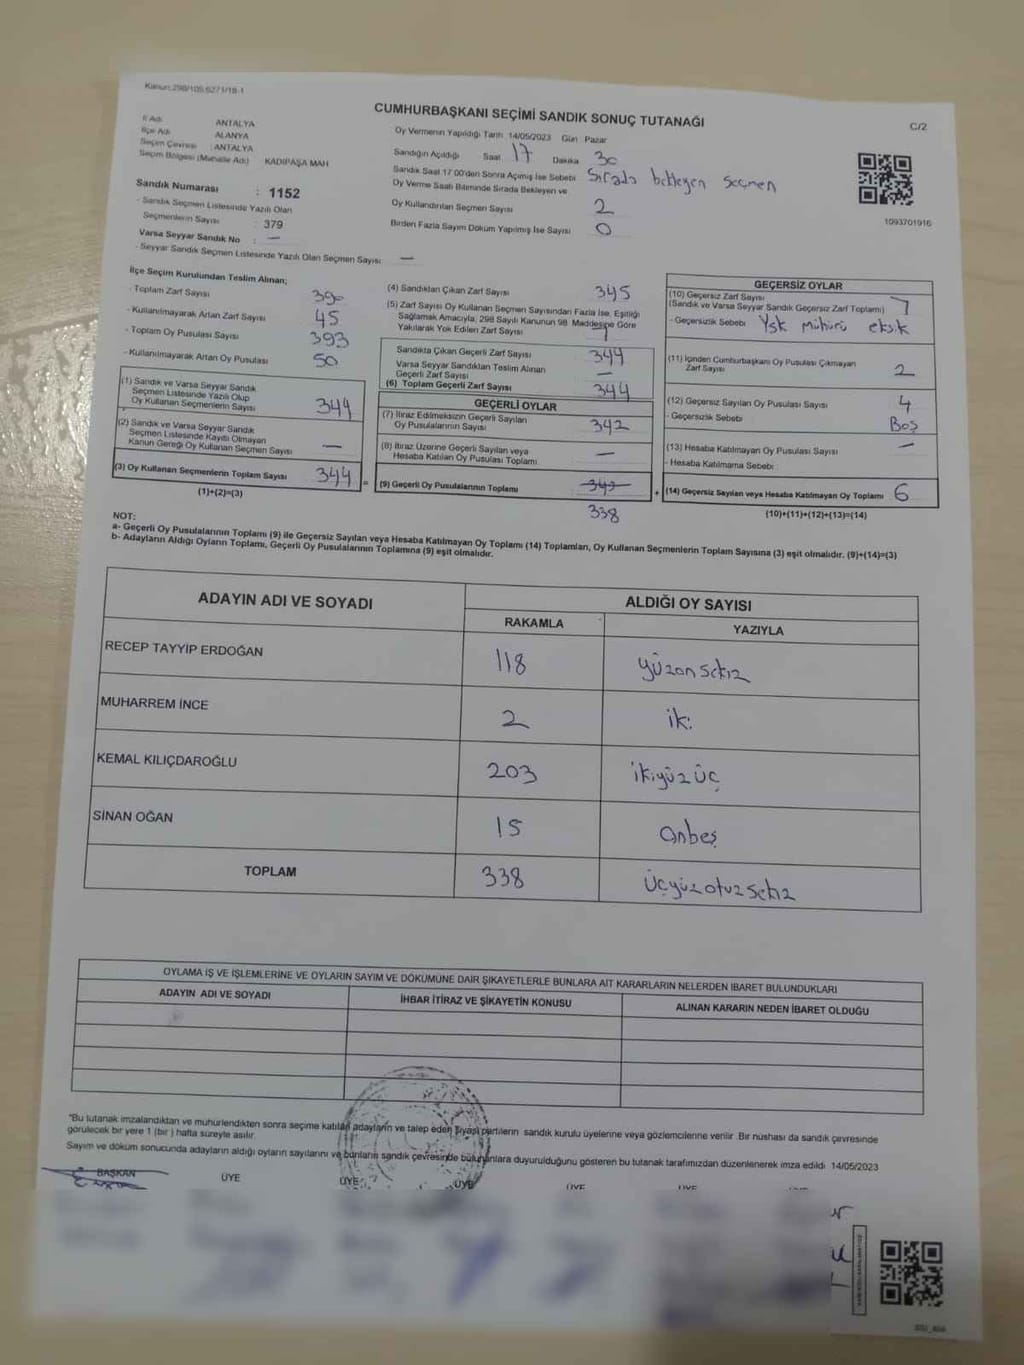 Kanun:298/105,6271/18-1
CUMHURBAŞKANI SEÇİMİ SANDIK SONUÇ TUTANAĞI
C/2
İl Adı ANTALYA
İlçe Adı ALANYA
Seçim Çevresi : ANTALYA
Seçim Bölgesi (Mahalle Adı) KADIPAŞA MAH
Sandık Numarası : 1152
- Sandık Seçmen Listesinde Yazılı Olan
Seçmenlerin Sayısı : 379
Varsa Seyyar Sandık No : —
- Seyyar Sandık Seçmen Listesinde Yazılı Olan Seçmen Sayısı —
Oy Vermenin Yapıldığı Tarih 14/05/2023 Gün Pazar
Sandığın Açıldığı Saat 17 Dakika 30
Sandık Saat 17 00'den Sonra Açımış İse Sebebi Sırada bekleyen seçmen
Oy Verme Saati Bitiminde Sırada Bekleyen ve
Oy Kullandırılan Seçmen Sayısı 2
Birden Fazla Sayım Döküm Yapılmış İse Sayısı 0
1093701916
İlçe Seçim Kurulundan Teslim Alınan;
- Toplam Zarf Sayısı 390
- Kullanılmayarak Artan Zarf Sayısı 45
- Toplam Oy Pusulası Sayısı 393
- Kullanılmayarak Artan Oy Pusulası 50
(1) Sandık ve Varsa Seyyar Sandık
Seçmen Listesinde Yazılı Olup
Oy Kullanan Seçmenlerin Sayısı 344
(2) Sandık ve Varsa Seyyar Sandık
Seçmen Listesinde Kayıtlı Olmayan
Kanun Gereği Oy Kullanan Seçmen Sayısı —
(3) Oy Kullanan Seçmenlerin Toplam Sayısı 344
(1)+(2)=(3)
(4) Sandıktan Çıkan Zarf Sayısı 345
(5) Zarf Sayısı Oy Kullanan Seçmen Sayısından Fazla İse, Eşitliği
Sağlamak Amacıyla, 298 Sayılı Kanunun 98 Maddesine Göre
Yakılarak Yok Edilen Zarf Sayısı 1
Sandıkta Çıkan Geçerli Zarf Sayısı 344
Varsa Seyyar Sandıktan Teslim Alınan
Geçerli Zarf Sayısı —
(6) Toplam Geçerli Zarf Sayısı 344
GEÇERLİ OYLAR
(7) İtiraz Edilmeksizin Geçerli Sayılan
Oy Pusulalarının Sayısı 342
(8) İtiraz Üzerine Geçerli Sayılan veya
Hesaba Katılan Oy Pusulası Toplamı —
(9) Geçerli Oy Pusulalarının Toplamı 342
338
GEÇERSİZ OYLAR
(10) Geçersiz Zarf Sayısı
(Sandık ve Varsa Seyyar Sandık Geçersiz Zarf Toplamı)
- Geçersizlik Sebebi Ysk mührü eksik
(11) İçinden Cumhurbaşkanı Oy Pusulası Çıkmayan
Zarf Sayısı 2
(12) Geçersiz Sayılan Oy Pusulası Sayısı 4
- Geçersizlik Sebebi Boş
(13) Hesaba Katılmayan Oy Pusulası Sayısı —
- Hesaba Katılmama Sebebi
(14) Geçersiz Sayılan veya Hesaba Katılmayan Oy Toplamı 6
(10)+(11)+(12)+(13)=(14)
NOT:
a- Geçerli Oy Pusulalarının Toplamı (9) ile Geçersiz Sayılan veya Hesaba Katılmayan Oy Toplamı (14) Toplamları, Oy Kullanan Seçmenlerin Toplam Sayısına (3) eşit olmalıdır. (9)+(14)=(3)
b- Adayların Aldığı Oyların Toplamı, Geçerli Oy Pusulalarının Toplamına (9) eşit olmalıdır.
ADAYIN ADI VE SOYADI ALDIĞI OY SAYISI
RAKAMLA YAZIYLA
RECEP TAYYİP ERDOĞAN 118 yüzonsekiz
MUHARREM İNCE 2 iki
KEMAL KILIÇDAROĞLU 203 ikiyüzüç
SİNAN OĞAN 15 onbeş
TOPLAM 338 üçyüzotuzsekiz
OYLAMA İŞ VE İŞLEMLERİNE VE OYLARIN SAYIM VE DÖKÜMÜNE DAİR ŞİKAYETLERLE BUNLARA AİT KARARLARIN NELERDEN İBARET BULUNDUKLARI
ADAYIN ADI VE SOYADI İHBAR İTİRAZ VE ŞİKAYETİN KONUSU ALINAN KARARIN NEDEN İBARET OLDUĞU
"Bu tutanak imzalandıktan ve mühürlendikten sonra seçime katılan adayların ve talep eden siyasi partilerin sandık kurulu üyelerine veya gözlemcilerine verilir. Bir nüshası da sandık çevresinde
görülecek bir yere 1 (bir) hafta süreyle asılır.
Sayım ve döküm sonucunda adayların aldığı oyların sayılarını ve bunların sandık çevresinde bulunanlara duyurulduğunu gösteren bu tutanak tarafımızdan düzenlenerek imza edildi 14/05/2023
BAŞKAN ÜYE ÜYE ÜYE ÜYE ÜYE